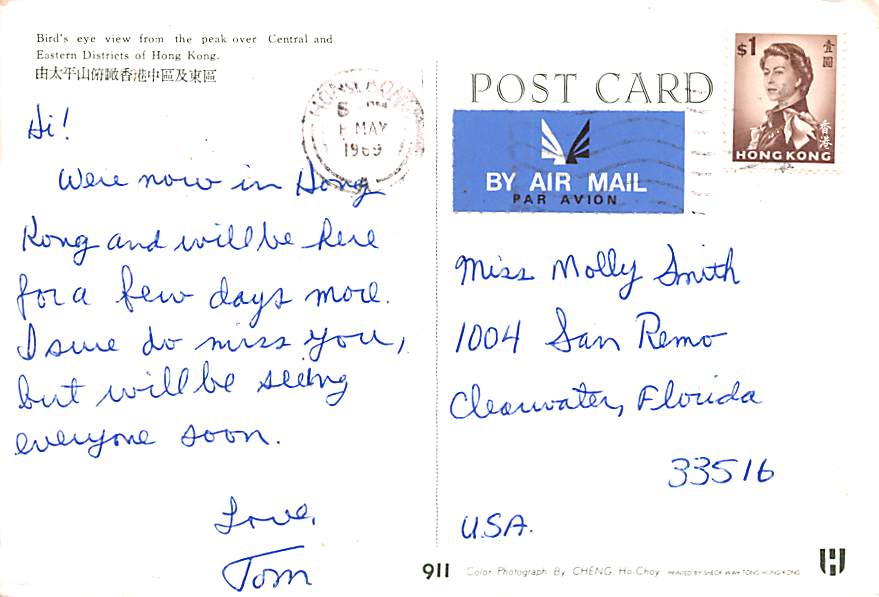 Bird's eye view from the peak over Central and
Eastern Districts of Hong Kong.
由太平山俯瞰香港中區及東區
Hi!
Were now in Hong
Kong and will be here
for a few days more.
I sure do miss you,
but will be seeing
everyone soon.
Love,
Tom
HONG KONG
MAY
1969
POST CARD
BY AIR MAIL
PAR AVION
$1
壹圓
香港
HONG KONG
Miss Molly Smith
1004 San Remo
Clearwater, Florida
33516
U.S.A.
911
Color Photograph By CHENG Ho-Choy
PRINTED BY SHECK WAH TONG HONG KONG